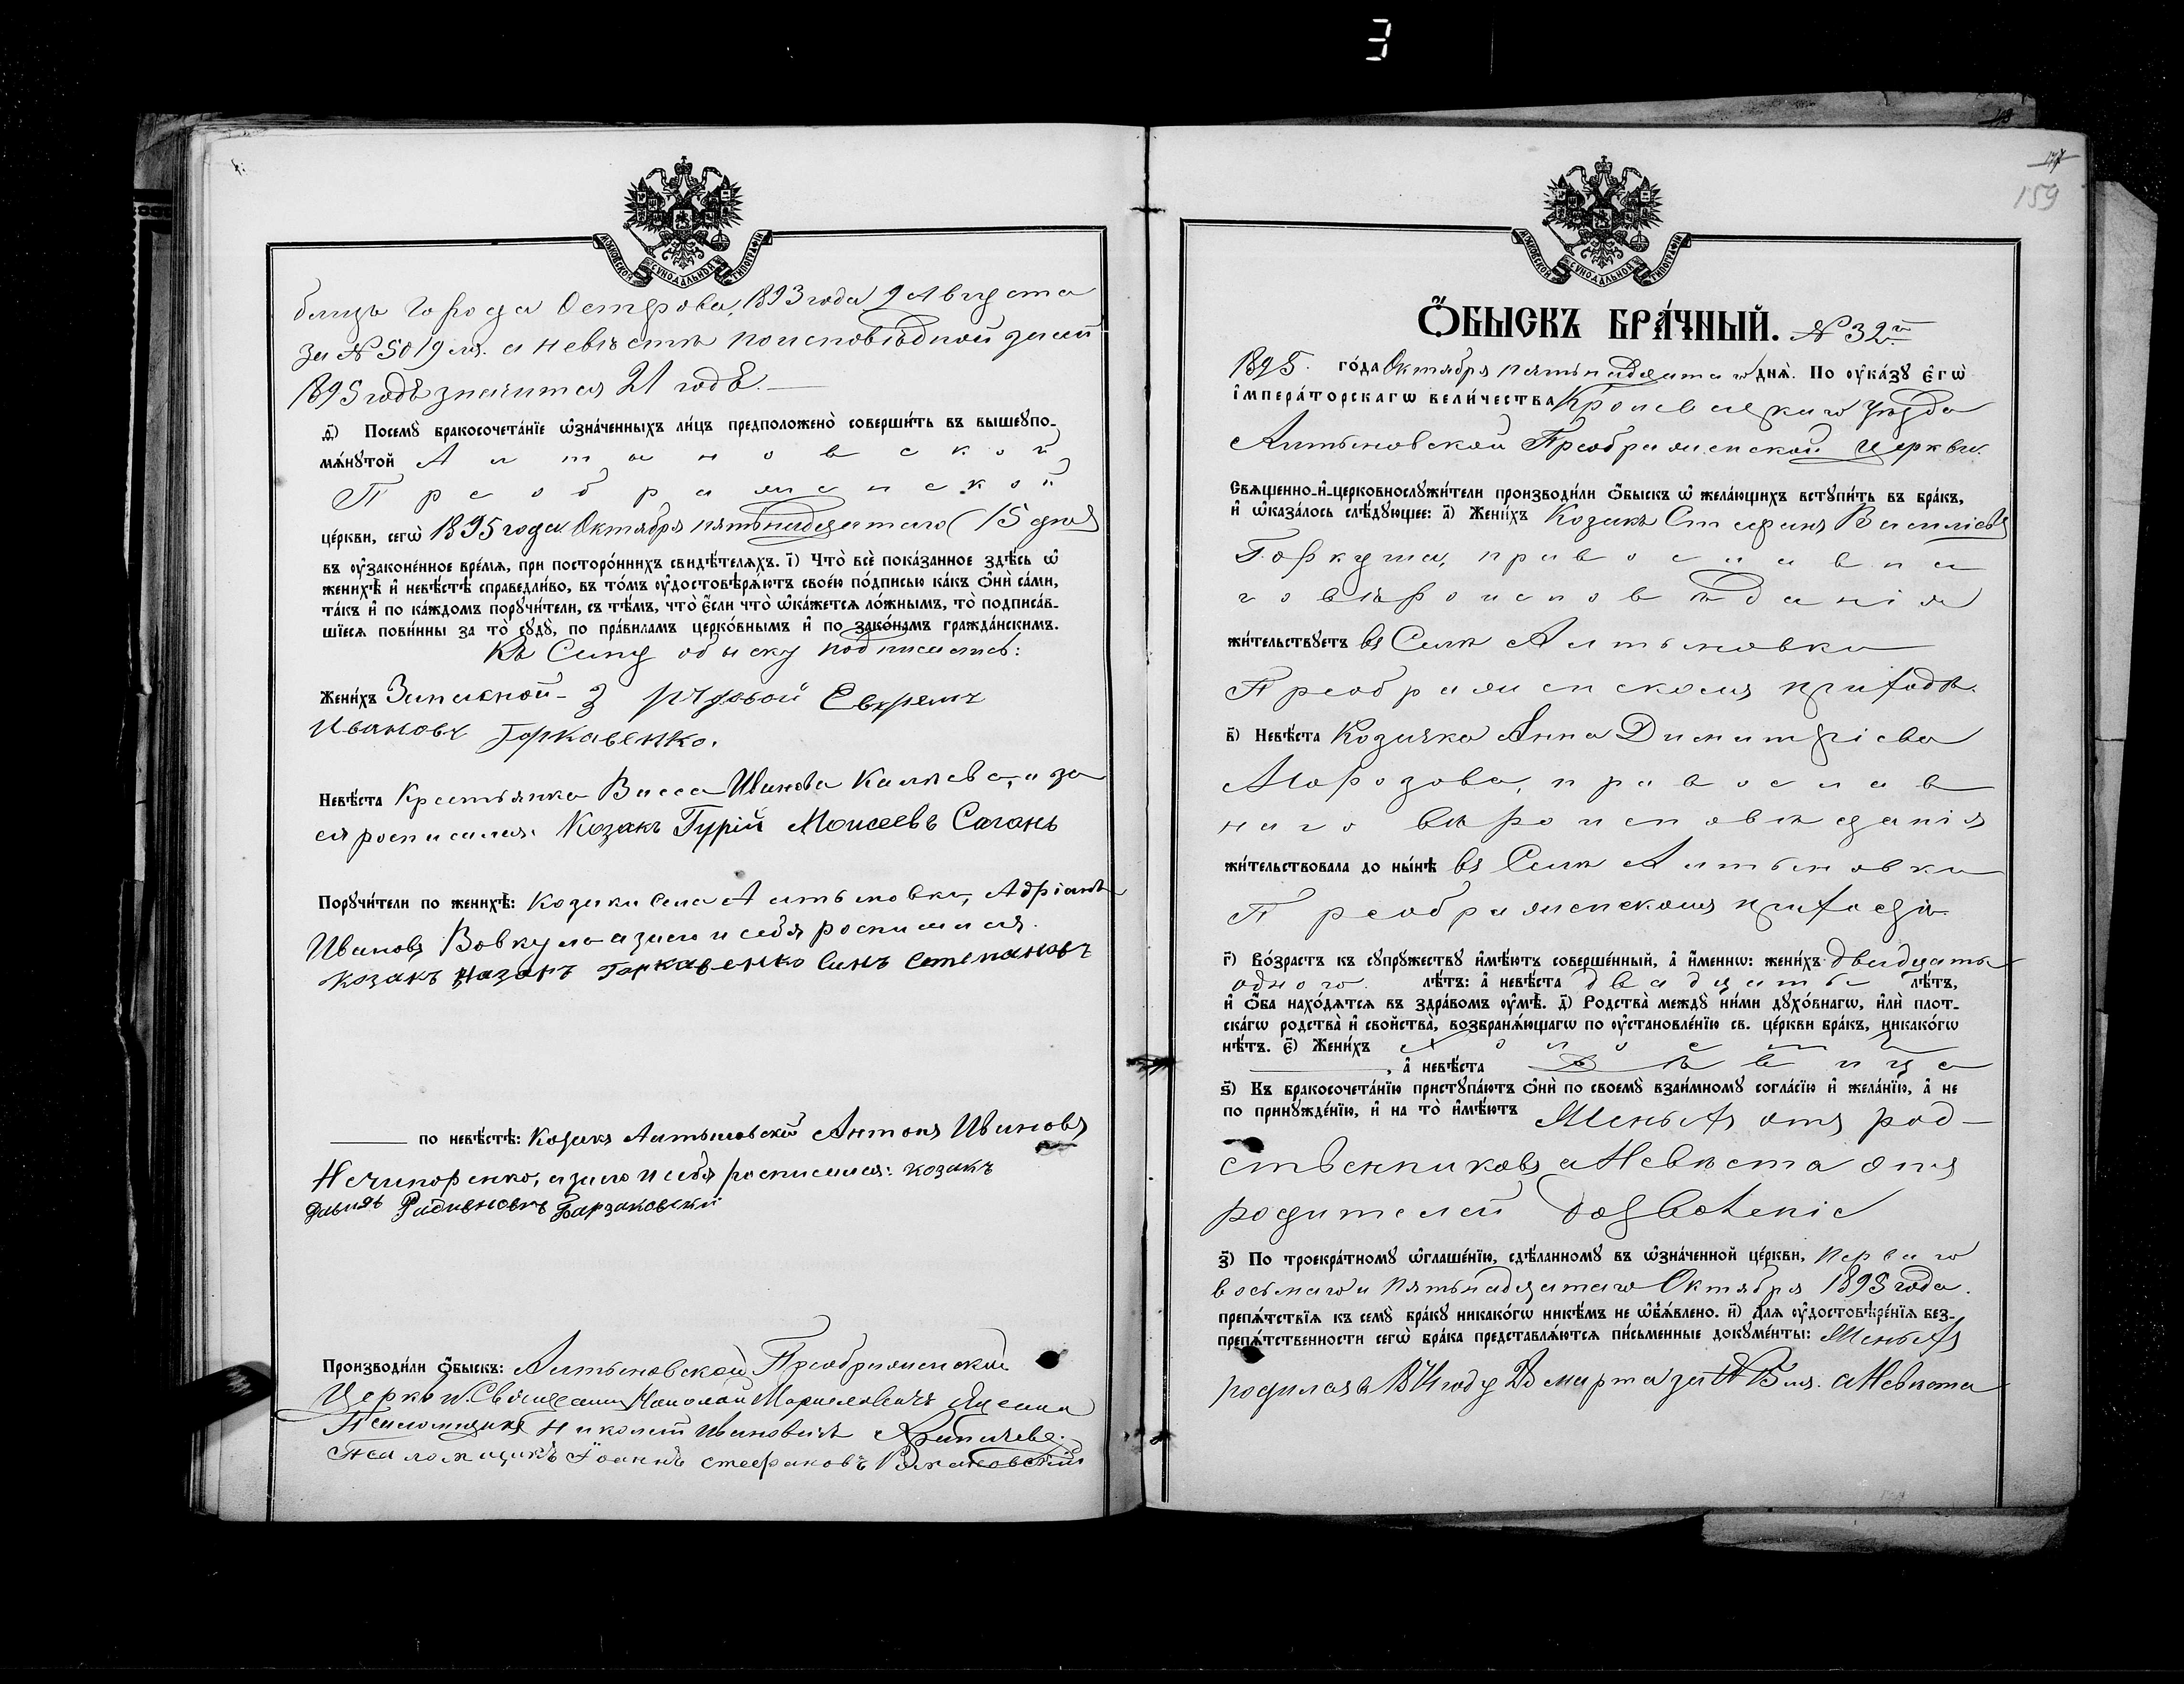 3
МОСКОВСКОЙ СѴНОДАЛЬНОЙ ТИПОГРАФІИ
города Острова, 1893 года 9 Августа
за № 5019 мъ. а невѣста по исповѣдной записи
1895 годѣ значится 21 годъ.
д҃) Посемꙋ бракосочета́нїе ѡ҆зна́ченныхъ ли́цъ предположено̀ соверши́ть въ вышеꙋпо-
мѧ́нꙋтой Алтыновской
Преображенской
це́ркви, сегѡ̀ 1895 года Октября пятьнадцатаго (15 дня)
въ ᲂу҆зако́ненное вре́мѧ, при посторо́ннихъ свидѣ́телѧхъ. і҃) Что̀ всѐ пока́занное здѣ́сь ѡ҆
женихѣ̀ и҆ невѣ́стѣ справедли́во, въ то́мъ ᲂу҆достовѣрѧ́ютъ свое́ю по́дписью ка́къ ѻ҆нѝ са́ми,
та́къ и҆ по ка́ждомъ порꙋчи́тели, съ тѣ́мъ, что̀ є҆́сли что̀ ѡ҆ка́жетсѧ ло́жнымъ, то̀ подписа́в-
шїесѧ пови́нны за то̀ сꙋдꙋ̀, по пра́виламъ церко́внымъ и҆ по зако́намъ гражда́нскимъ.
Къ Сему обыску подписались:
Жени́хъ Запасной рядовой Евфремъ
Ивановъ Горкавенко.
Невѣ́ста Крестьянка Васса Иванова а за
ея росписался: Козакъ Гурій Моисеевъ Сагань
Порꙋчи́тели по женихѣ̀: Козаки Села Алтыновки, Адріанъ
Ивановъ Вовкула а за него и себя росписался
козакъ Назаръ Горкавенко Синъ Степановъ
по невѣ́стѣ: Козакъ Алтыновскій Антонъ Ивановъ
Нечипоренко, а за него и себя росписался: козакъ
Давидъ Радивновъ Барзаковскій
Производи́ли ѻ҆́быскъ: Алтыновской Преображенской
Церкви Священникъ Николай
Псаломщикъ Николай Ивановичъ
Псаломщикъ Іоаннъ Стефановъ
МОСКОВСКОЙ СѴНОДАЛЬНОЙ ТИПОГРАФІИ
159
Ѻ҆́БЫСКЪ БРА́ЧНЫЙ. № 32й
1895. го́да Октября пятьнадцатаго днѧ̀. По ᲂу҆ка́зꙋ є҆гѡ̀
і҆мпера́торскагѡ вели́чества Кролевецкаго Уѣзда
Алтыновской Преображенской Церкви.
Свѧщенно-и҆-церковнослꙋжи́тели производи́ли ѻ҆́быскъ ѡ҆ жела́ющихъ встꙋпи́ть въ бра́къ,
и҆ ѡ҆каза́лось слѣ́дꙋющее: а҃) Жени́хъ Козакъ Стефанъ Василіевъ
Горкуша, православна
го вѣроисповѣданія
жи́тельствꙋетъ въ Селѣ Алтыновки
Преображенскомъ приходѣ.
в҃) Невѣ́ста Козачка Анна Димитріева
Морозова, православ
наго вѣроисповѣданія
жи́тельствовала до ны́нѣ въ Селѣ Алтыновки
Преображенскомъ приходѣ.
г҃) Во́зрастъ къ сꙋпрꙋ́жествꙋ и҆мѣ́ютъ соверше́нный, а҆ и҆́меннѡ: жени́хъ двадцать
одного лѣ́тъ: а҆ невѣ́ста двадцать лѣ́тъ,
и҆ ѻ҆́ба нахо́дѧтсѧ въ здра́вомъ ᲂу҆мѣ̀. д҃) Родства̀ междꙋ̀ ни́ми дꙋхо́внагѡ, и҆лѝ плот-
ска́гѡ родства̀ и҆ свойства̀, возбранѧ́ющагѡ по ᲂу҆становле́нїю св. це́ркви бра́къ, никако́гѡ
нѣ́тъ. є҃) Жени́хъ Холостъ
, а҆ невѣ́ста Дѣвица
ѕ҃) Къ бракосочета́нїю пристꙋпа́ютъ ѻ҆нѝ по своемꙋ̀ взаи́мномꙋ согла́сїю и҆ жела́нїю, а҆ не
по принꙋжде́нїю, и҆ на то̀ и҆мѣ́ютъ Женихъ отъ род-
ственниковъ а Невѣста отъ
родителей дозволеніе
з҃) По троекра́тномꙋ ѡ҆глаше́нїю, сдѣ́ланномꙋ въ ѡ҆зна́ченной це́ркви, перваго
восьмаго и пятьнадцатаго Октября 1895 года.
препѧ́тствїѧ къ семꙋ̀ бра́кꙋ никако́гѡ никѣ́мъ не ѡ҆б̾ѧ́влено. и҃) Длѧ ᲂу҆достовѣре́нїѧ без-
препѧ́тственности сегѡ̀ бра́ка представлѧ́ютсѧ пи́сьменные докꙋме́нты: Женихъ
родился въ году марта за № а Невѣста